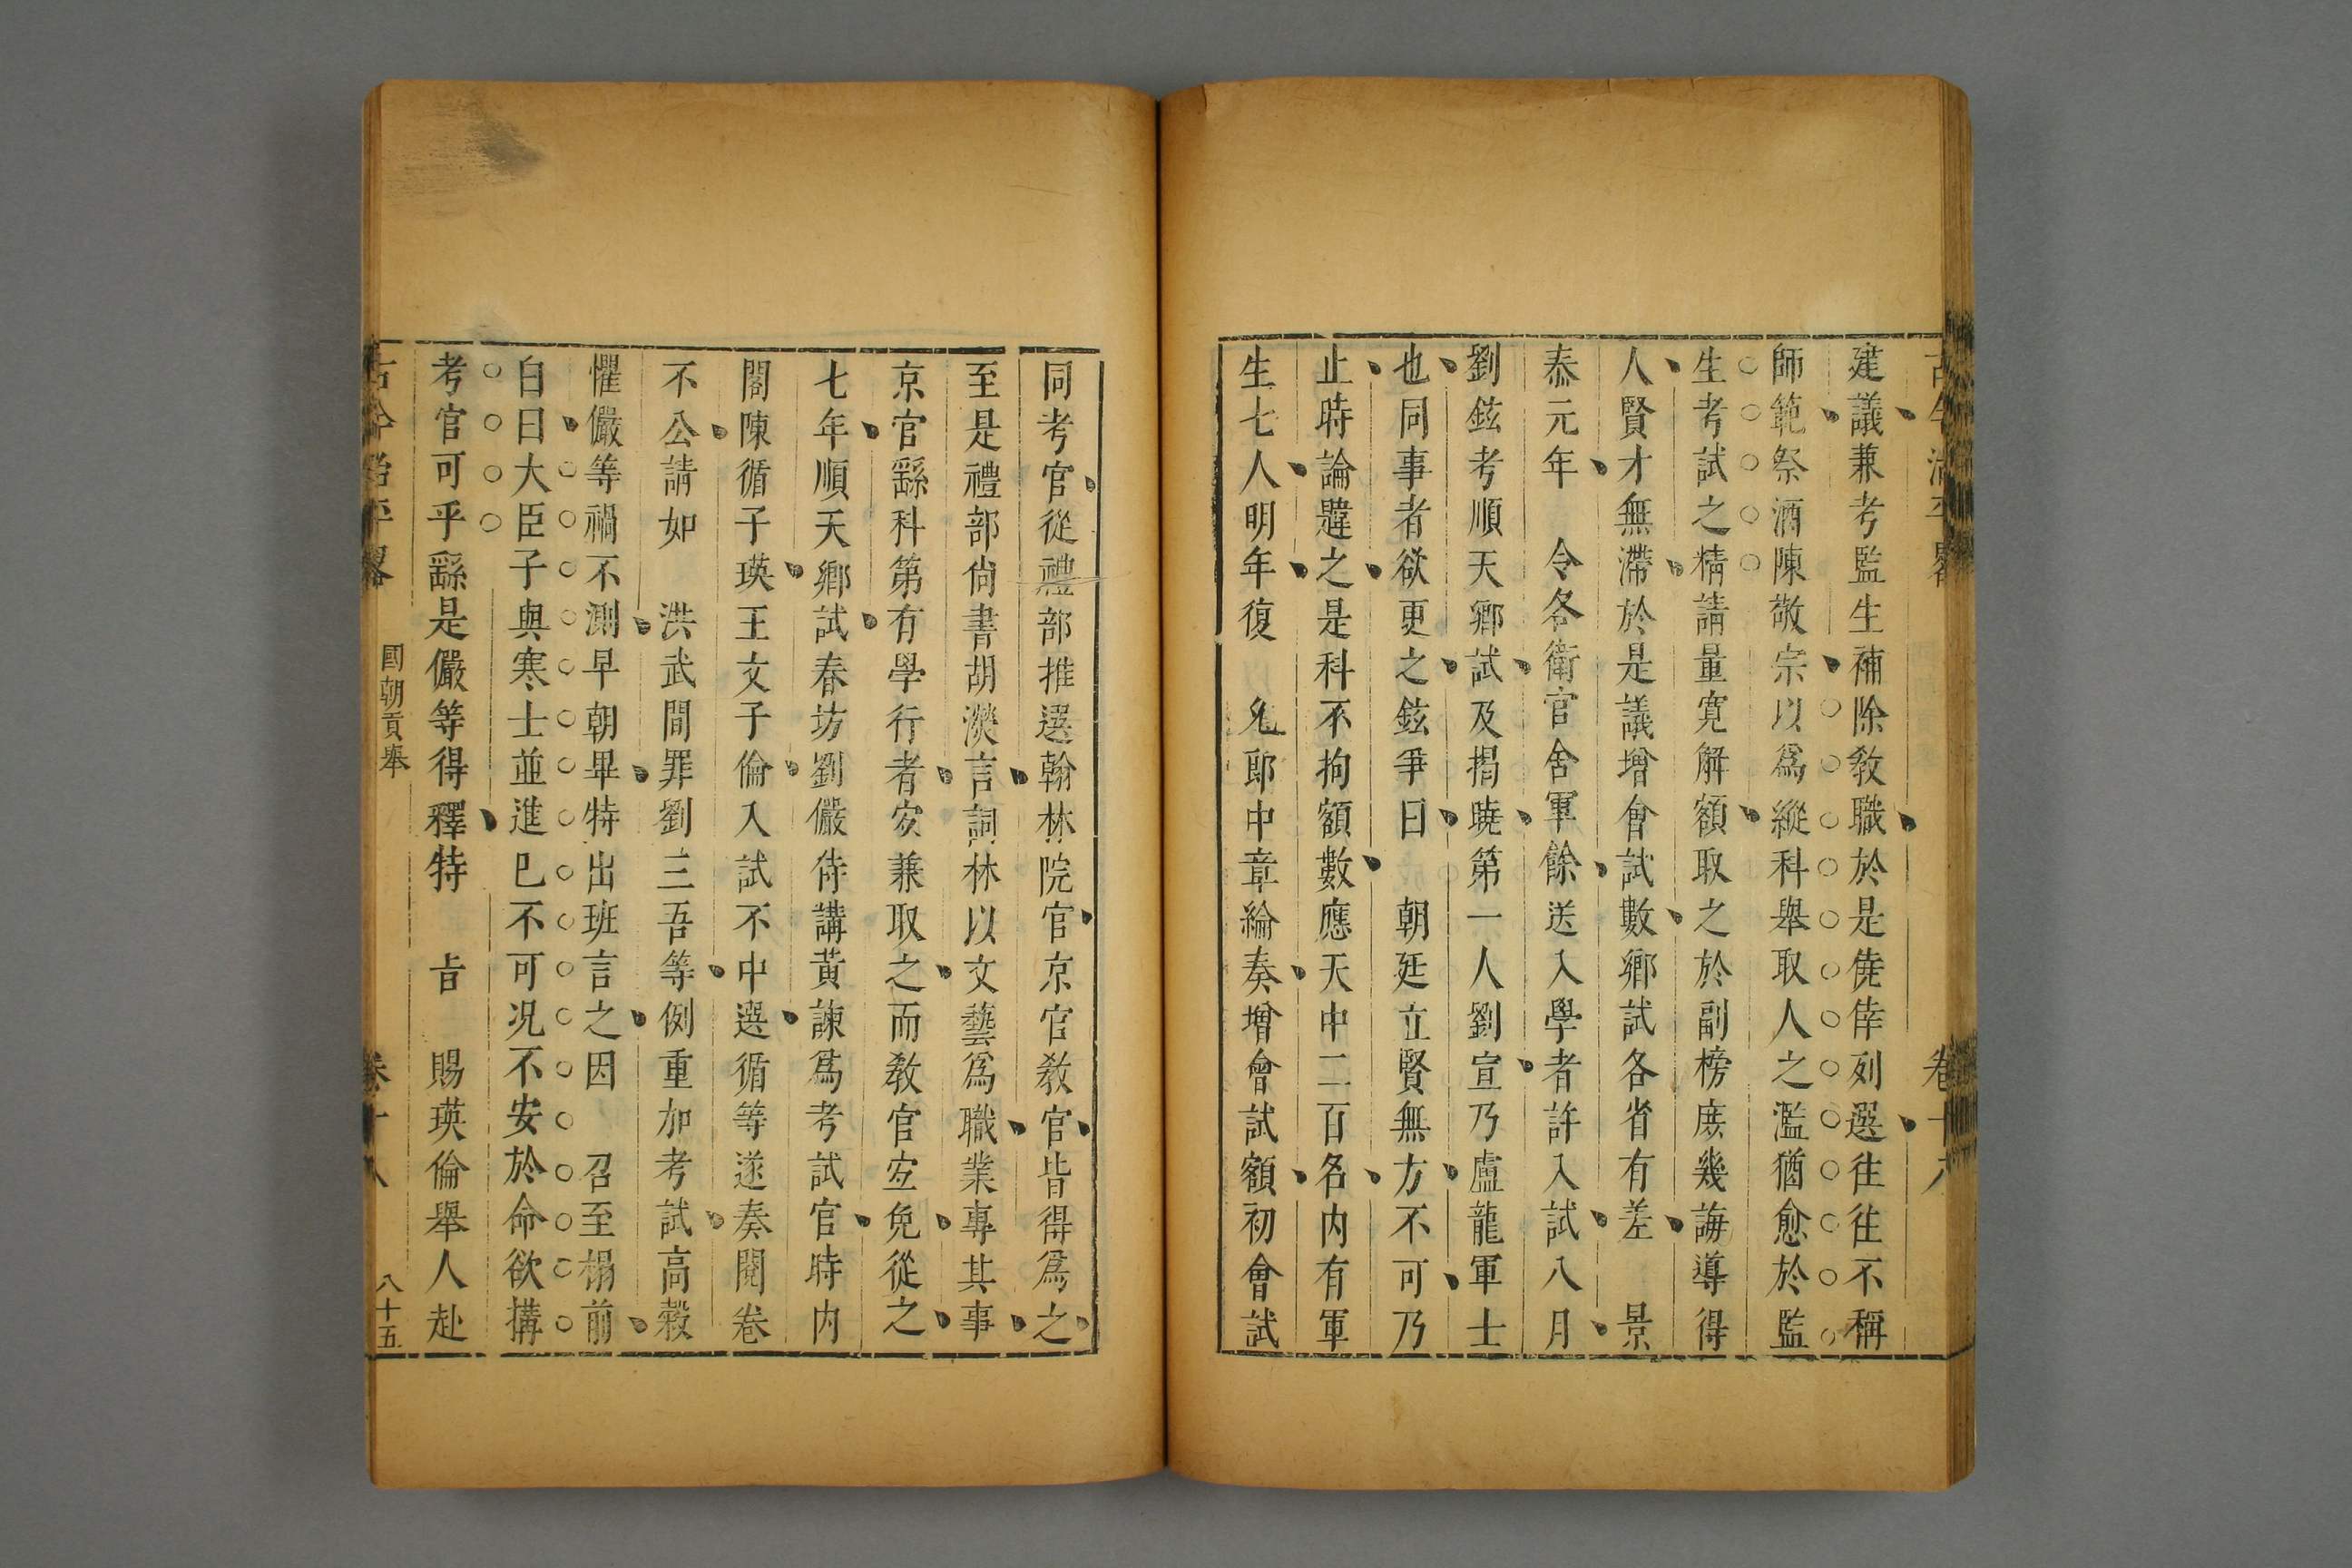 建議兼考監生補除敎職於是僥倖列選往往不稱
師範祭酒陳敬宗以爲縱科舉取人之濫猶愈於監
生考試之精請量寬解額取之於副榜庶幾誨導得
人賢才無滯於是議增會試數鄉試各省有差　景
泰元年　令各衛官舍軍餘送入學者許入試八月
劉鉉考順天鄉試及揭曉第一人劉宣乃盧龍軍士
也同事者欲更之鉉爭曰　朝廷立賢無方不可乃
止時論韙之是科不拘額數應天中二百名内有軍
生七人明年復　允郎中章綸奏增會試額初會試
同考官從禮部推選翰林院官京官敎官皆得爲之
至是禮部尙書胡濙言詞林以文藝爲職業專其事
京官繇科第有學行者宐兼取之而敎官宐免從之
七年順天鄉試春坊劉儼侍講黃諫爲考試官時内
閣陳循子瑛王文子倫入試不中選循等遂奏閱卷
不公請如　洪武間罪劉三吾等例重加考試高穀
懼儼等禍不測早朝畢特出班言之因　召至榻前
白曰大臣子與寒士並進已不可况不安於命欲搆
考官可乎繇是儼等得釋特　旨　賜瑛倫舉人赴
古今治平畧　國朝貢舉　卷十八　八十五